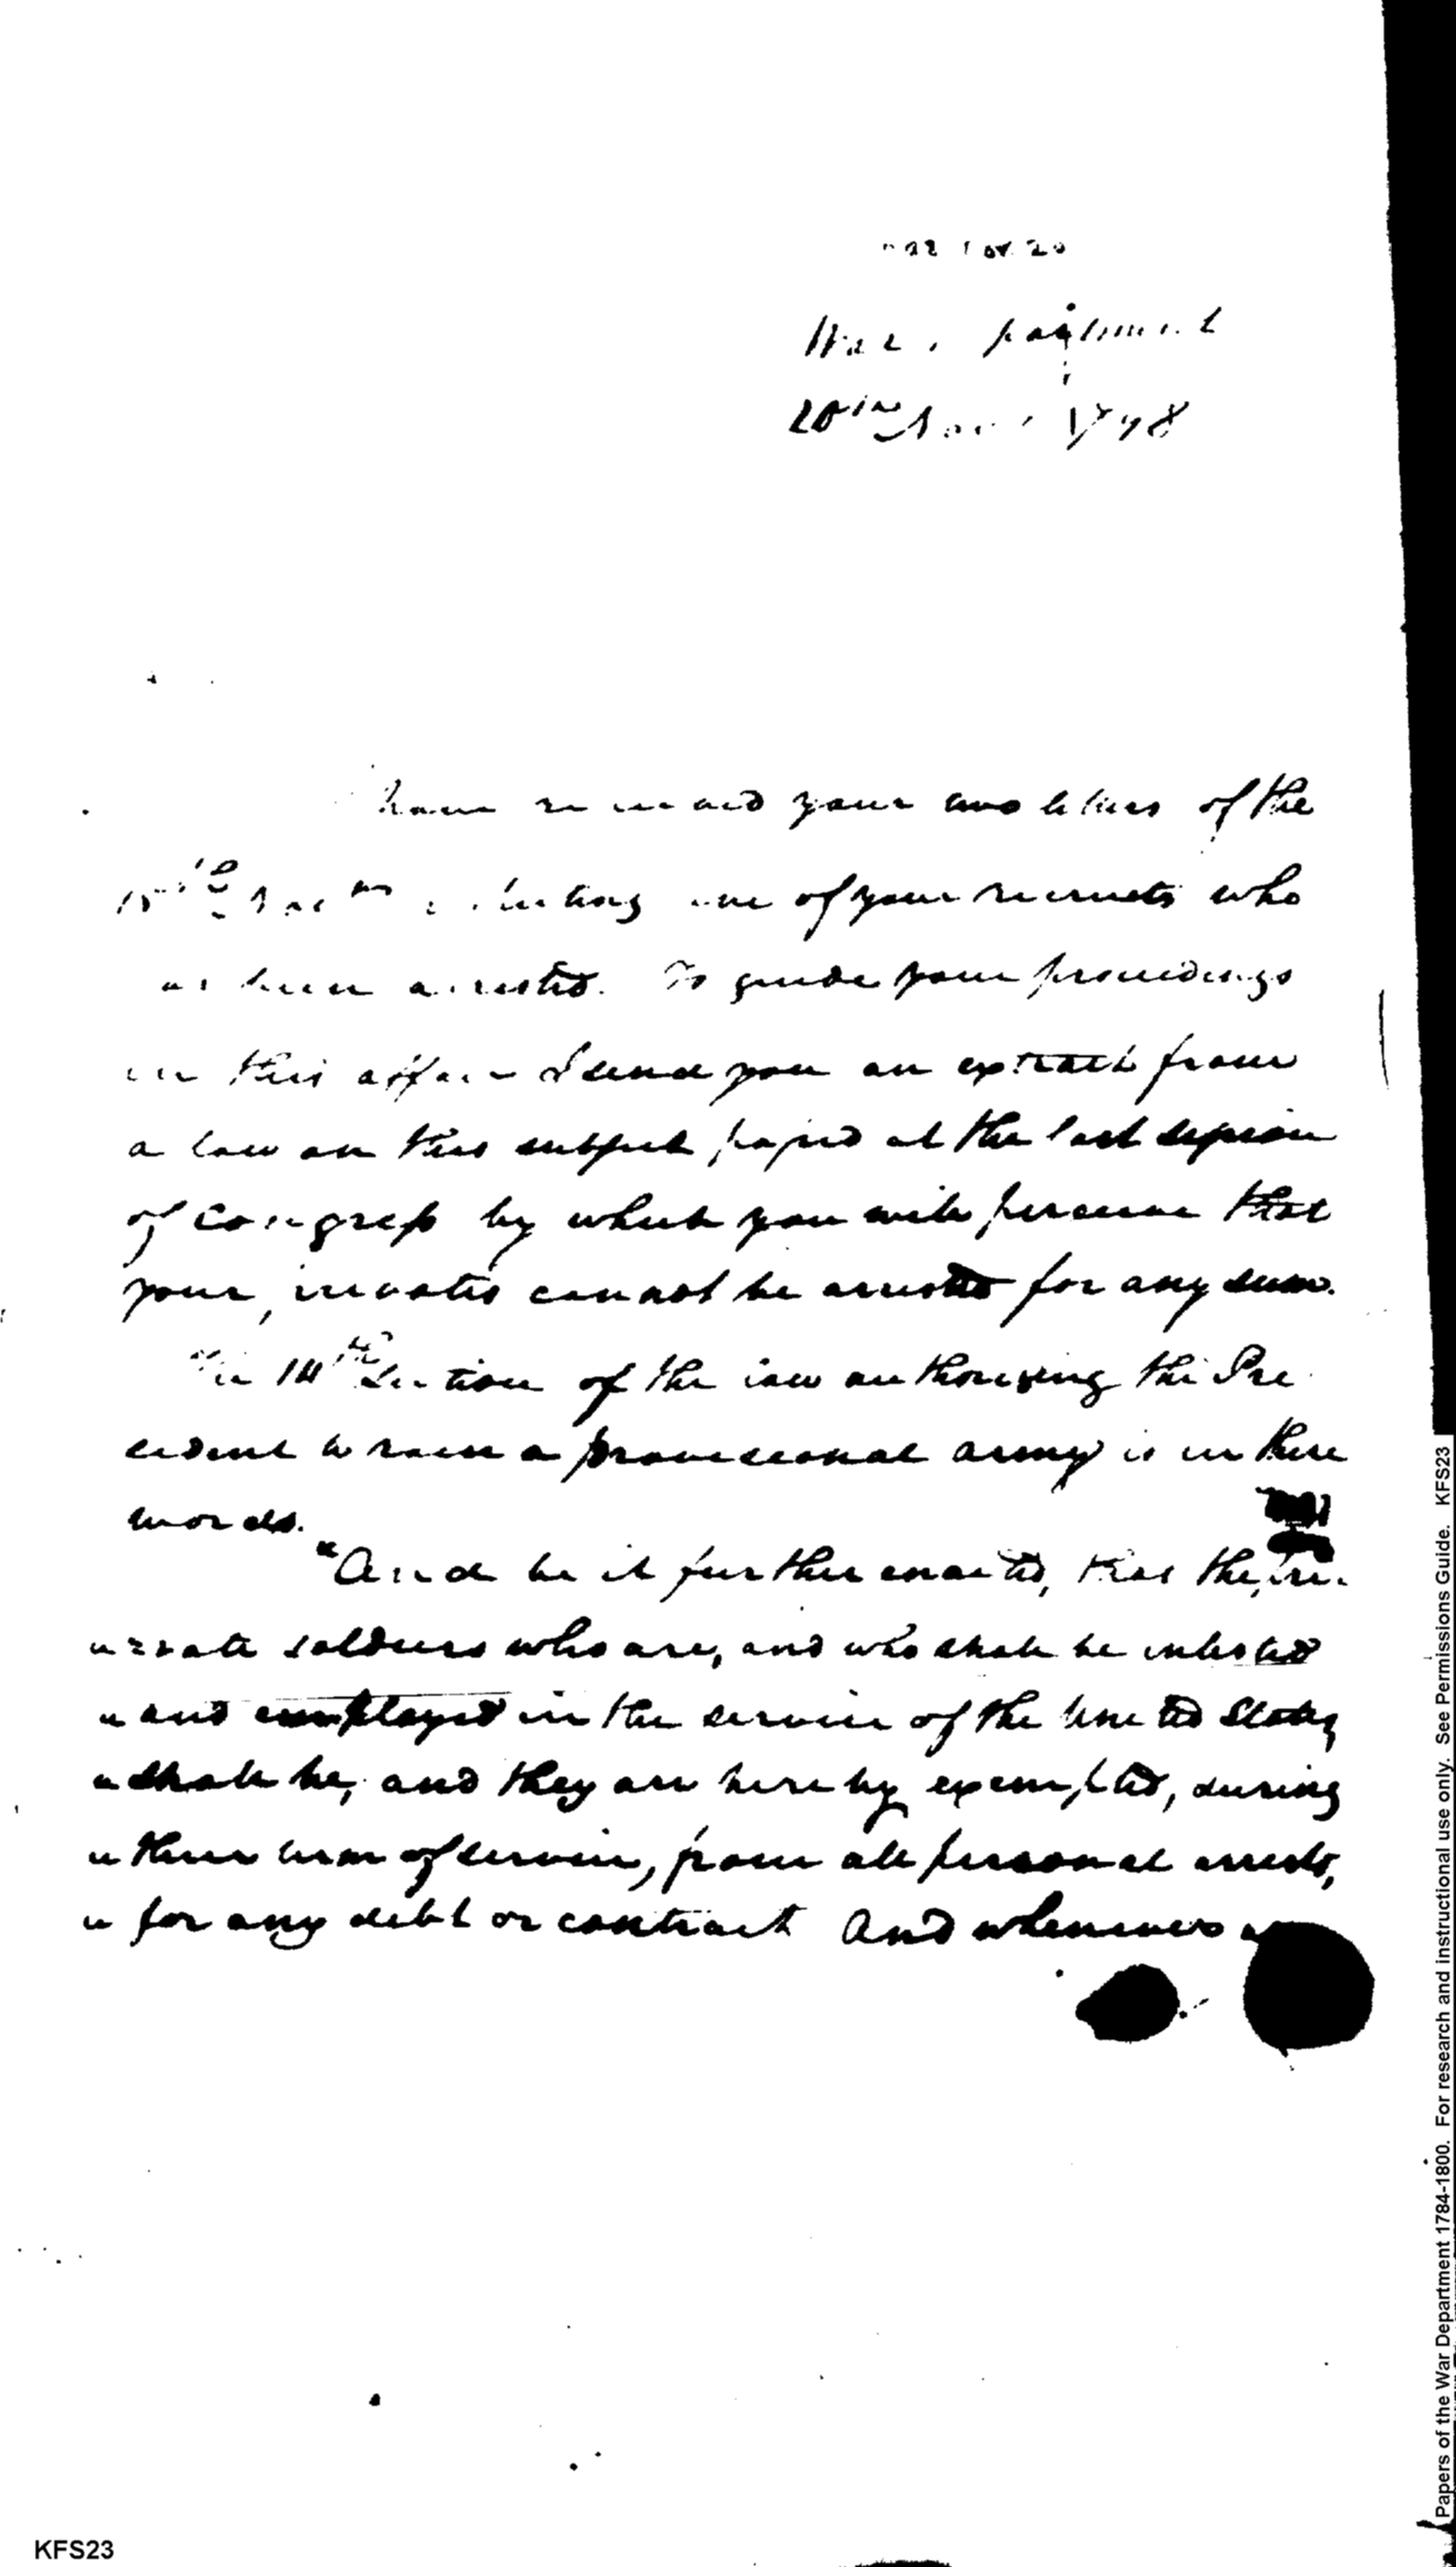 War Department
20th Nov. 1798
have received your two letters of the
15th one of your recruits who
has been arrested. To guide your proceedings
in this affair I send you an extract from
a law on this subject passed at the last session
of Congress by which you will perceive that
your privates cannot be arrested for any sum.
The 14th Section of the law authorising the Pre
sident to raise a provisional army is in these
words.
"And be it further enacted, that the, pri-
"vate soldiers who are, and who shall be inlisted
"and employed in the service of the United States,
"shall be, and they are hereby exempted, during
"their term of service, from all personal arrests,
"for any debt or contract And whenever a
KFS23
Papers of the War Department 1784-1800. For research and instructional use only. See Permissions Guide. KFS23